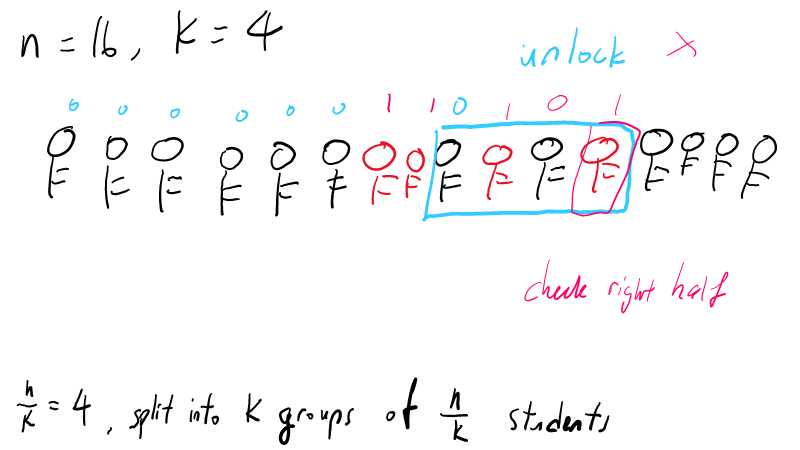 n = 16, k = 4
unlock ×
0 0 0 0 0 0 1 1 0 1 0 1
check right half
n/k = 4, split into k groups of n/k students